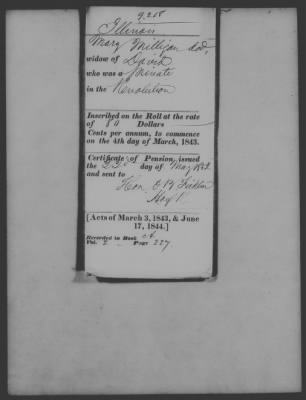 9,258
Illinois
Mary Milligan dec'd,
widow of David
who was a Private
in the Revolution
Inscribed on the Roll at the rate
of 80 Dollars
Cents per annum, to commence
on the 4th day of March, 1843.
Certificate of Pension issued
the 22d day of May
and sent to
Hon. O B Ficklin
[Acts of March 3, 1843, & June
17, 1844.]
Recorded in Book A
Vol. 2 Page 227